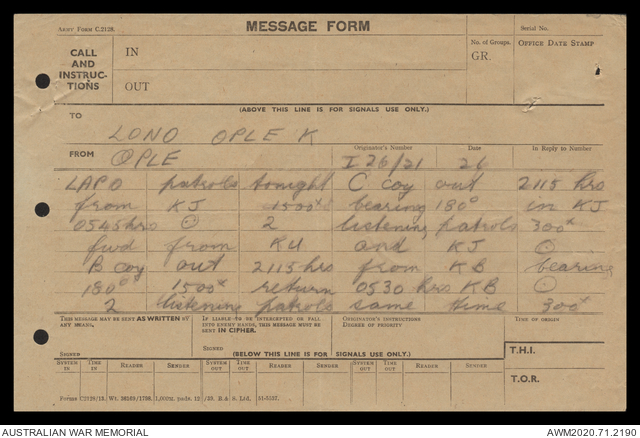 ARMY FORM C.2128.
MESSAGE FORM
Serial No.
CALL AND INSTRUCTIONS
IN
OUT
No. of Groups.
GR.
OFFICE DATE STAMP
(ABOVE THIS LINE IS FOR SIGNALS USE ONLY.)
TO
LONO OPLE K
FROM
OPLE
Originator's Number
I 26/21
Date
26
In Reply to Number
LAPO patrols tonight C coy out 2115 hrs
from KJ 1500x bearing 180° in KJ
0545hrs ⊙ 2 listening patrols 300x
fwd from KU and KJ ⊙
B coy out 2115hrs from KB bearing
180° 1500x return 0530 hrs KB ⊙
2 listening patrols same time 300x
THIS MESSAGE MAY BE SENT AS WRITTEN BY ANY MEANS.
SIGNED
IF LIABLE TO BE INTERCEPTED OR FALL INTO ENEMY HANDS, THIS MESSAGE MUST BE SENT IN CIPHER.
SIGNED
ORIGINATOR'S INSTRUCTIONS
DEGREE OF PRIORITY
TIME OF ORIGIN
(BELOW THIS LINE IS FOR SIGNALS USE ONLY.)
T.H.I.
T.O.R.
SYSTEM IN
TIME IN
READER
SENDER
SYSTEM OUT
TIME OUT
READER
SENDER
SYSTEM OUT
TIME OUT
READER
SENDER
AUSTRALIAN WAR MEMORIAL
AWM2020.71.2190